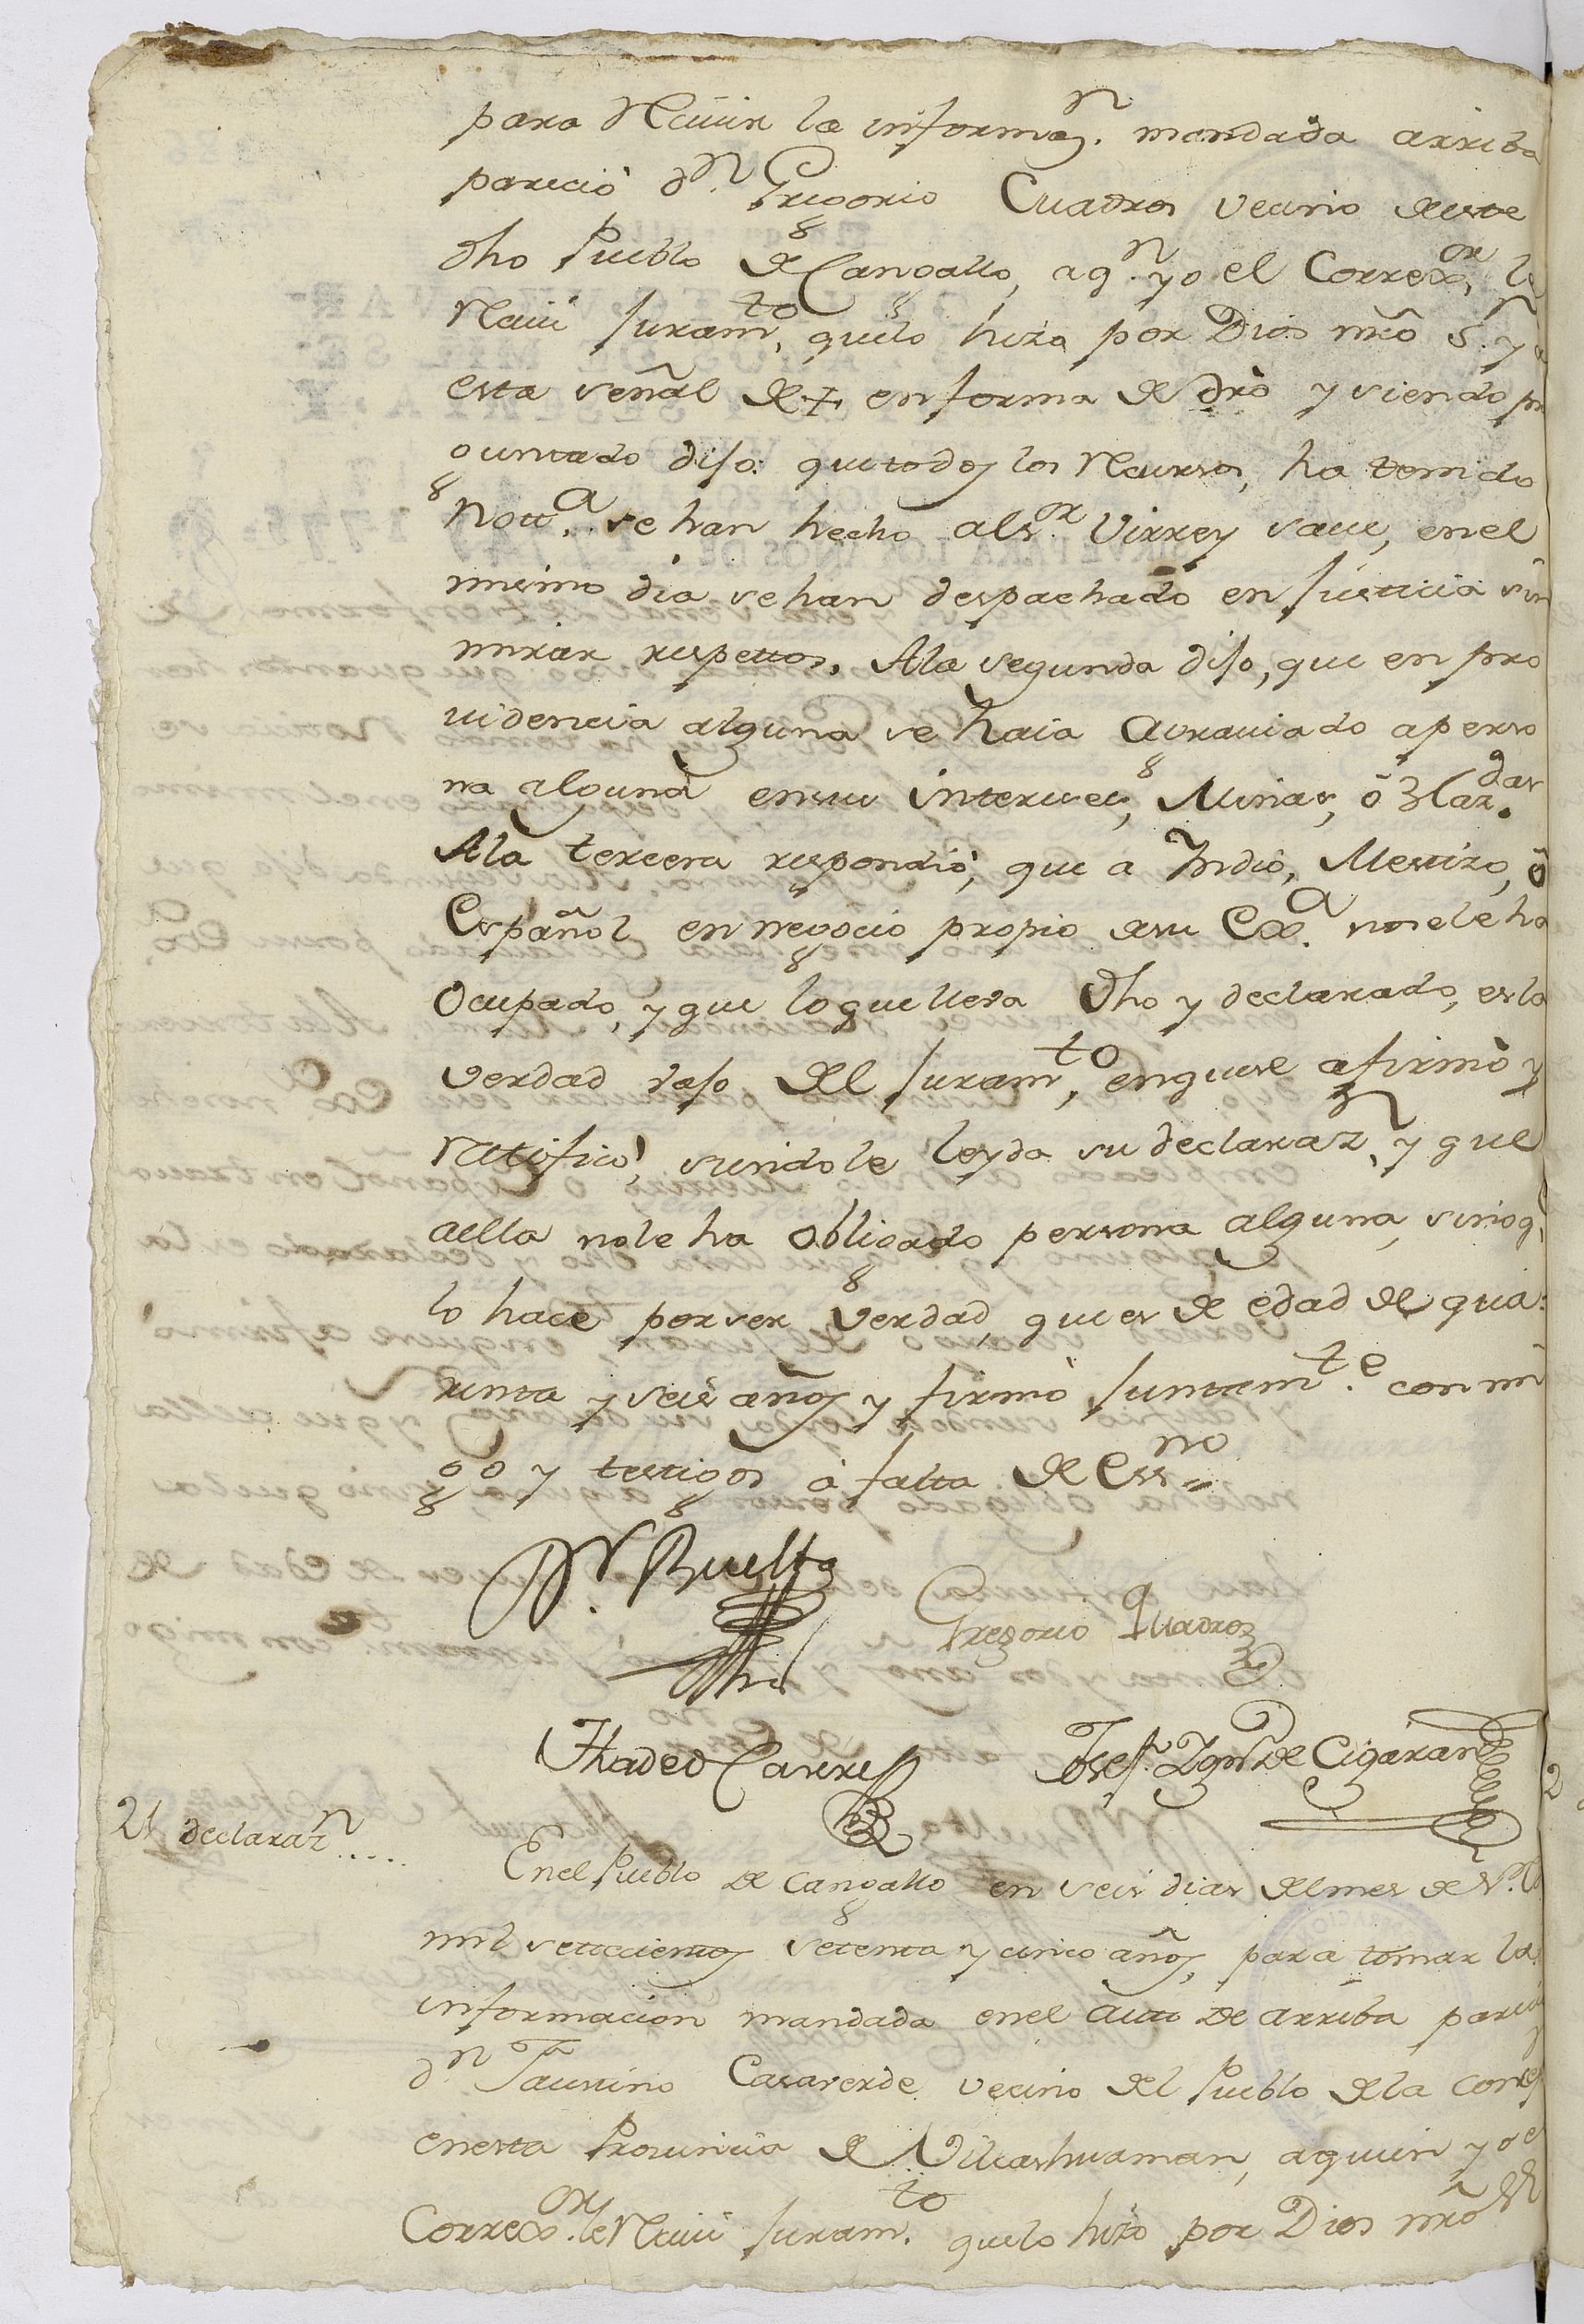 para Reciuir la informaz.n mandada arriba
parecio d.n Gregorio Cuadros vecino de este
dho Pueblo de Cangallo, aq.n yo el Correx.or le
Reciui juram.to, quelo hizo por Dios nrō S.r y a
esta señal de + enforma de dro y siendo pre
guntado dijo: que todos los Recursos, ha tenido
nott.a se han hecho als.or Virrey save, enel
mismo dia sehan despachado en justicia sin
mirar respettos. Ala segunda dijo, que en pro
uidencia alguna se haia agraviado aperso
na alguna ensus intereses, Minas, ó Haz.das
Ala tercera respondió, que a Yndio, Mestizo, ó
Español en negocio propio desu Exa. nosele ha
Ocupado, y que loque lleva dho y declarado, es la
verdad vajo del juram.to, enquese afirmó y
ratificó, siendole leyda su declaraz.n y que
aella nole ha obligado persona alguna, sinoq.e
lo hace por ser verdad, que es de edad de qua:
renta y seis años y firmó juntam.te con mi
go y testigos á falta de Ess.no
D.r Buelta
Gregorio Quadros
Thadeo Carres
Josef Ygn.o de Cigaran
21 declaraz.n....
Enel Pueblo de Cangallo en seis dias del mes de
mil settecientos setenta y cinco años, para tomar la
informacion mandada enel auto de arriba pareció
d.n Faustino Casaverde vecino del Pueblo dela
enesta Prouincia de Vilcashuaman, aquien yo el
Correx.or le Reciui juram.to quelo hizo por Dios nrō S.r